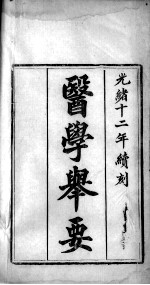 光緒十二年續刻
醫學舉要